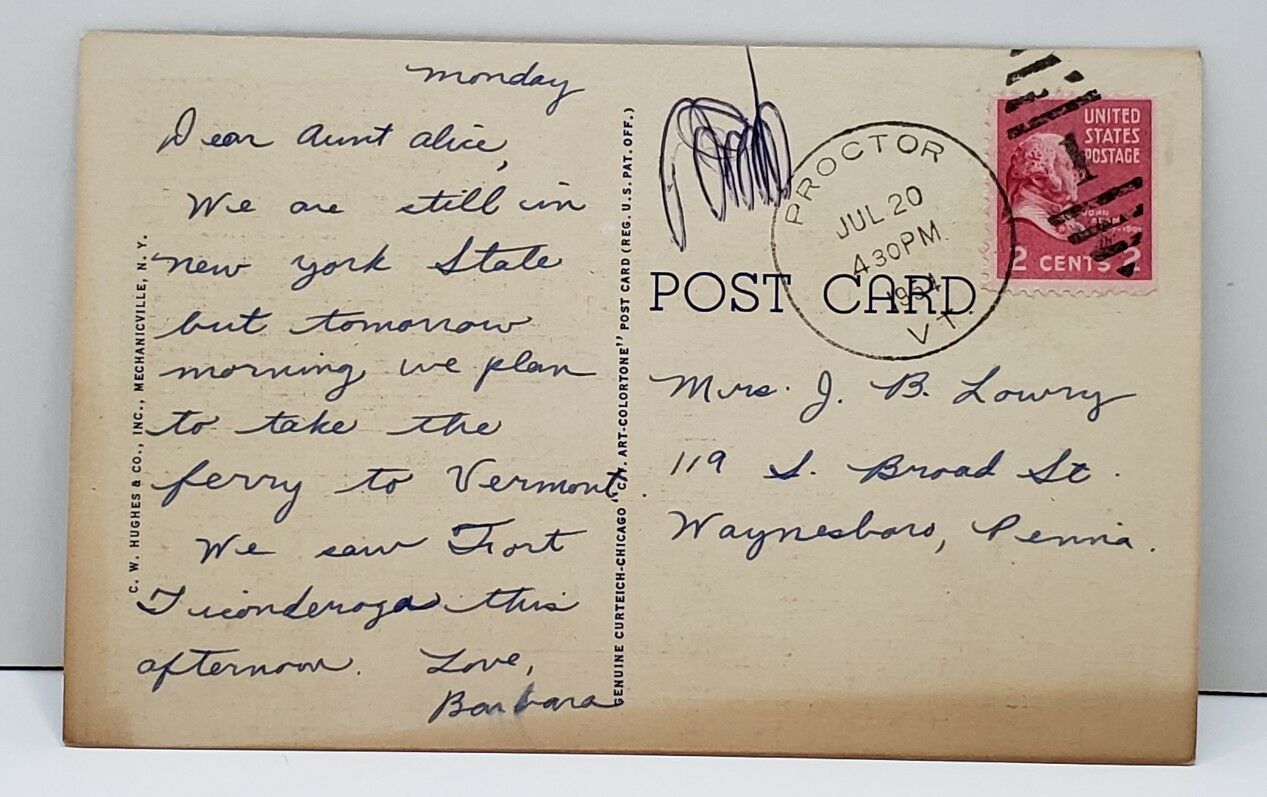 Monday
Dear Aunt Alice,
We are still in
New York State
but tomorrow
morning we plan
to take the
ferry to Vermont.
We saw Fort
Ticonderoga this
afternoon. Love,
Barbara
C. W. HUGHES & CO., INC., MECHANICVILLE, N. Y.
GENUINE CURTEICH-CHICAGO "C.T. ART-COLORTONE" POST CARD (REG. U.S. PAT. OFF.)
POST CARD
PROCTOR
JUL 20
430PM
1954
VT
UNITED
STATES
POSTAGE
JOHN
2 CENTS 2
1
Mrs. J. B. Lowry
119 S. Broad St.
Waynesboro, Penna.